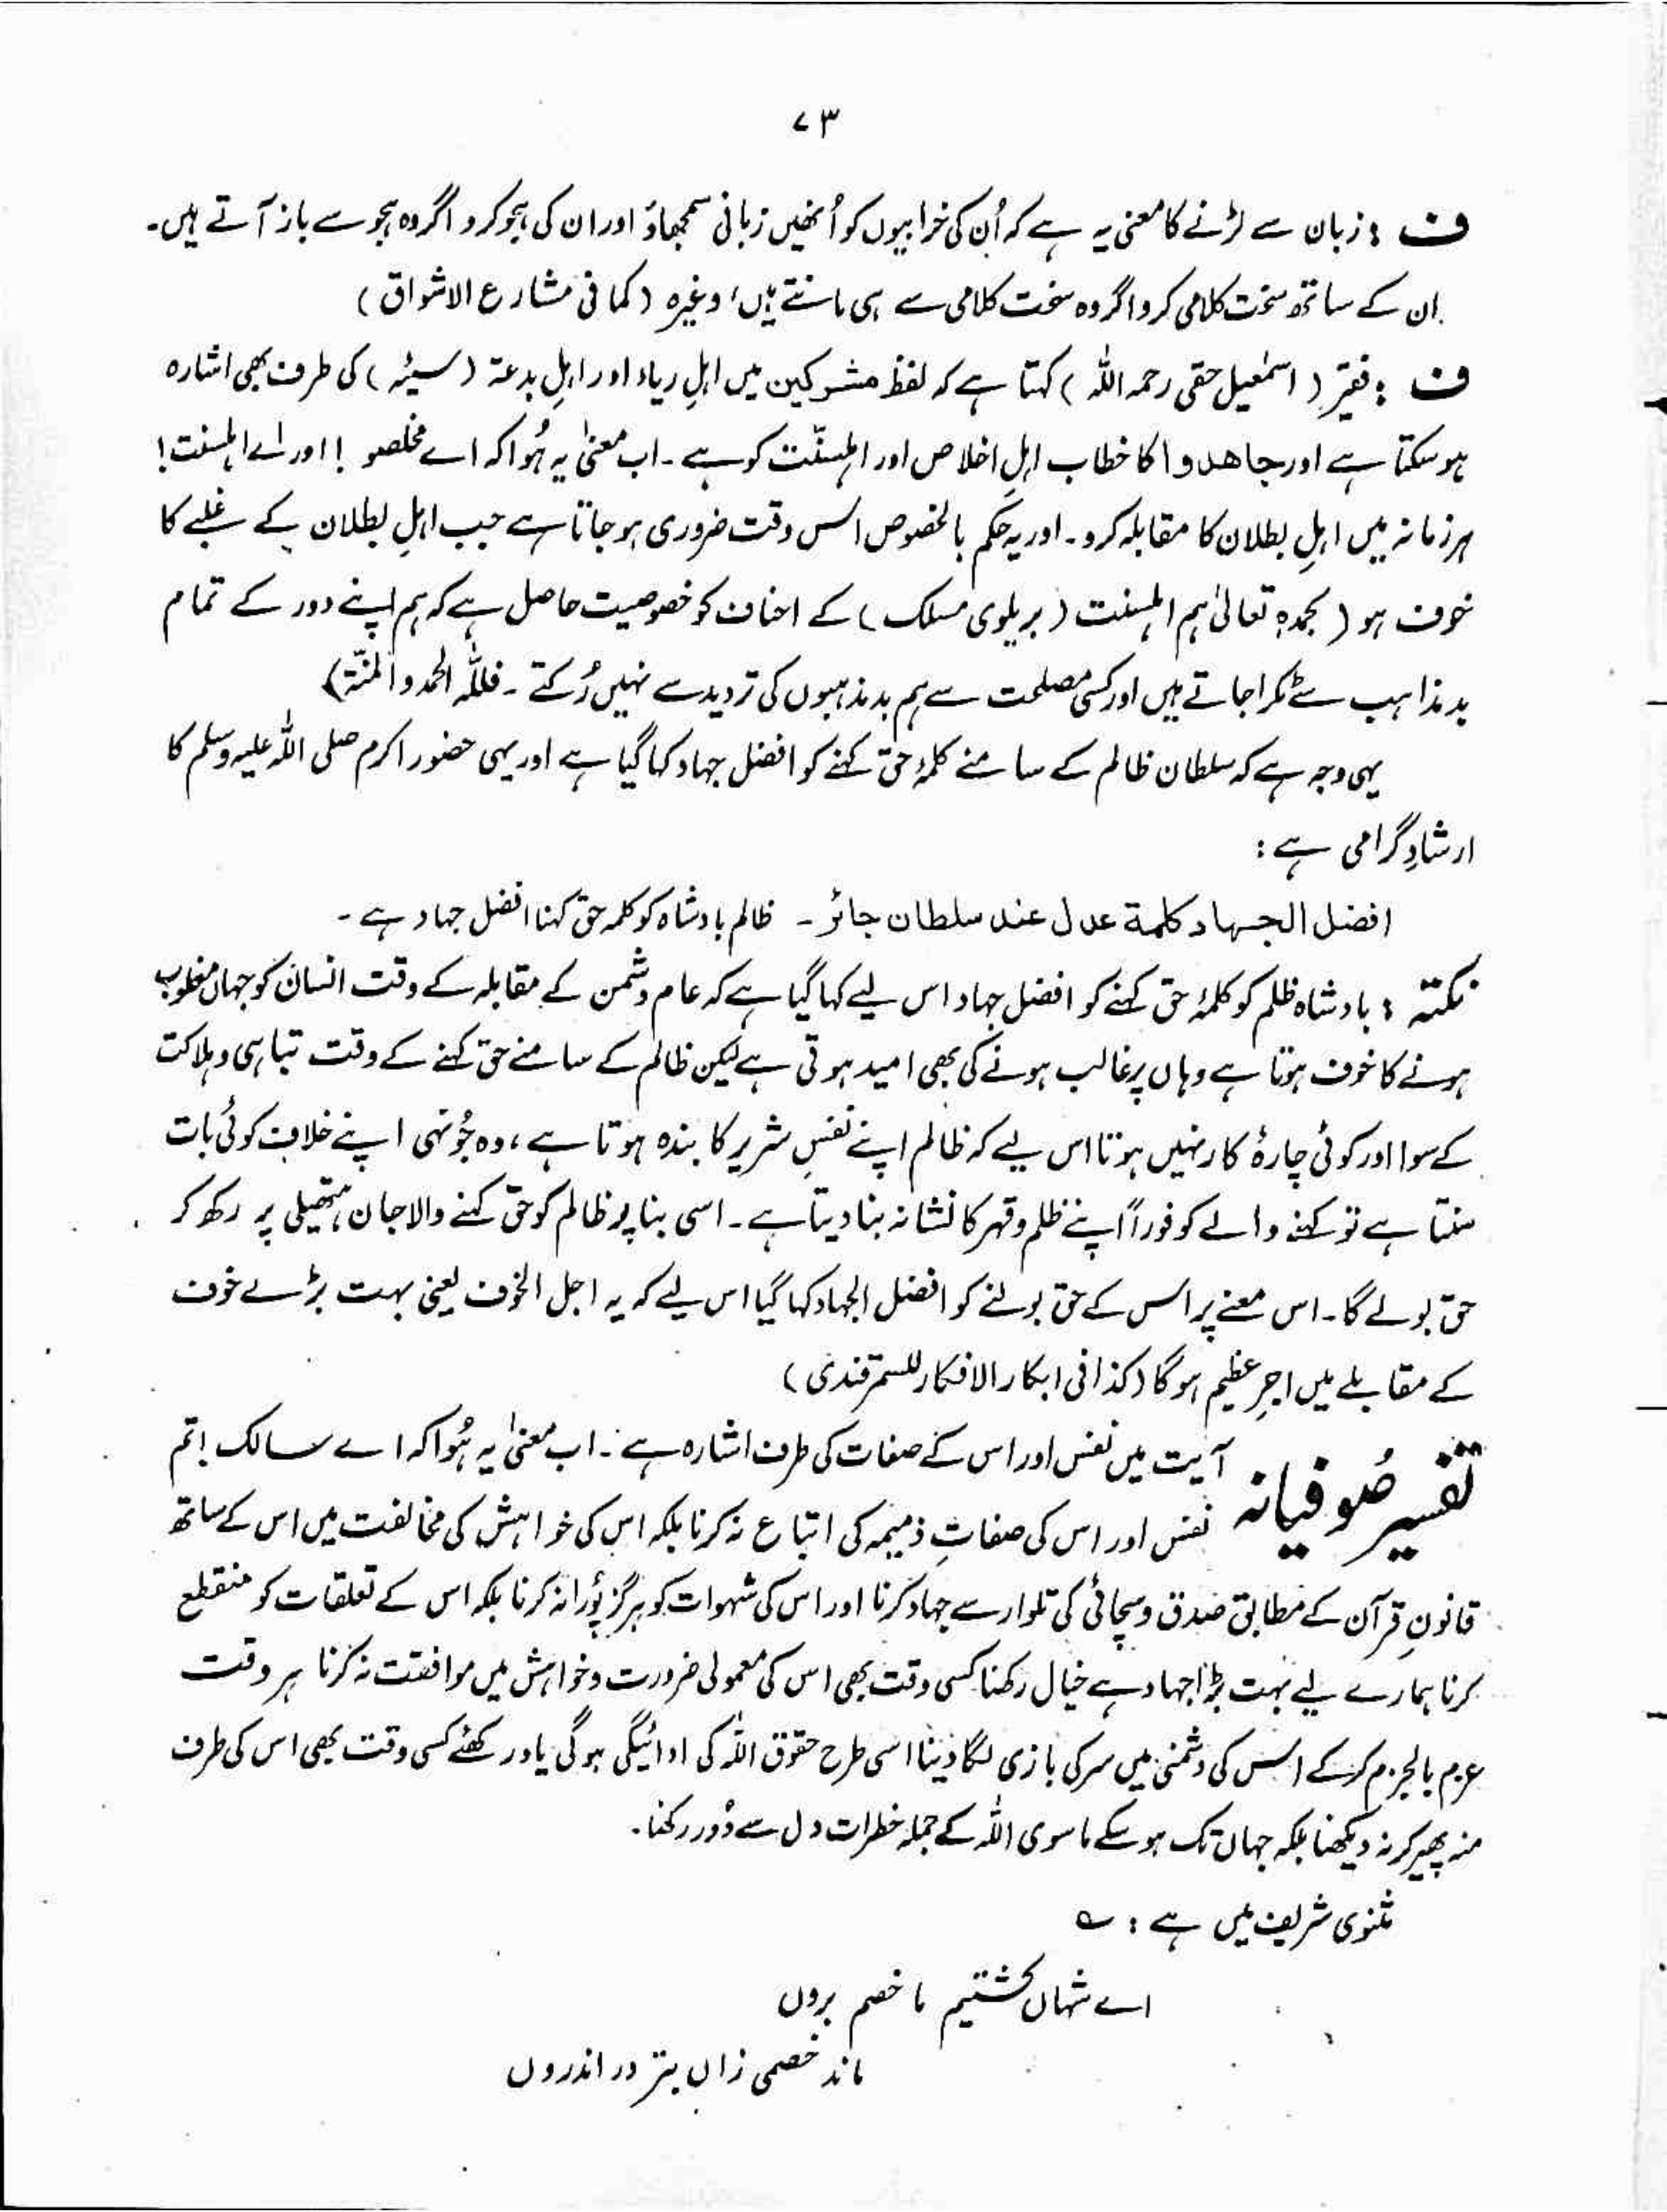 ۷۳
ف : زبان سے لڑنے کا معنی یہ ہے کہ اُن کی خرابیوں کو اُنھیں زبانی سمجھاؤ اور ان کی ہجو کرو اگر وہ ہجو سے باز آتے ہیں۔
ان کے ساتھ سخت کلامی کرو اگر وہ سخت کلامی سے ہی مانتے ہیں، وغیرہ (کما فی مشارع الاشواق)
ف : فقیر (اسمٰعیل حقی رحمہ اللہ) کہتا ہے کہ لفظ مشرکین میں اہلِ ریاء اور اہلِ بدعۃ (سیئہ) کی طرف بھی اشارہ
ہو سکتا ہے اور جاھدوا کا خطاب اہلِ اخلاص اور اہلسنّت کو ہے۔ اب معنیٰ یہ ہُوا کہ اے مخلصو! اور اے اہلسنت!
ہر زمانہ میں اہلِ بطلان کا مقابلہ کرو۔ اور یہ حکم بالخصوص اس وقت ضروری ہو جاتا ہے جب اہلِ بطلان کے غلبے کا
خوف ہو (بحمدہٖ تعالیٰ ہم اہلسنت (بریلوی مسلک) کے احناف کو خصوصیت حاصل ہے کہ ہم اپنے دور کے تمام
بدمذاہب سے ٹکرا جاتے ہیں اور کسی مصلحت سے ہم بدمذہبوں کی تردید سے نہیں رُکتے۔ فللّٰہ الحمد والمنّۃ)
یہی وجہ ہے کہ سلطان ظالم کے سامنے کلمۂ حق کہنے کو افضل جہاد کہا گیا ہے اور یہی حضور اکرم صلی اللہ علیہ وسلم کا
ارشادِ گرامی ہے :
افضل الجہاد کلمۃ عدل عند سلطان جائر ۔ ظالم بادشاہ کو کلمہ حق کہنا افضل جہاد ہے۔
نکتہ : بادشاہ ظلم کو کلمۂ حق کہنے کو افضل جہاد اس لیے کہا گیا ہے کہ عام دشمن کے مقابلہ کے وقت انسان کو جہاں مغلوب
ہونے کا خوف ہوتا ہے وہاں پر غالب ہونے کی بھی امید ہوتی ہے لیکن ظالم کے سامنے حق کہنے کے وقت تباہی و ہلاکت
کے سوا اور کوئی چارۂ کار نہیں ہوتا اس لیے کہ ظالم اپنے نفسِ شریر کا بندہ ہوتا ہے، وہ جُونہی اپنے خلاف کوئی بات
سنتا ہے تو کہنے والے کو فوراً اپنے ظلم و قہر کا نشانہ بنا دیتا ہے۔ اسی بنا پر ظالم کو حق کہنے والا جان ہتھیلی پر رکھ کر
حق بولے گا۔ اس معنے پر اس کے حق بولنے کو افضل الجہاد کہا گیا اس لیے کہ یہ اجل الخوف یعنی بہت بڑے خوف
کے مقابلے میں اجرِ عظیم ہوگا (کذا فی ابکار الافکار للسمرقندی)
تفسیر صُوفیانہ آیت میں نفس اور اس کے صفات کی طرف اشارہ ہے۔ اب معنیٰ یہ ہُوا کہ اے سالک! تم
نفس اور اس کی صفاتِ ذمیمہ کی اتباع نہ کرنا بلکہ اس کی خواہش کی مخالفت میں اس کے ساتھ
قانونِ قرآن کے مطابق صدق و سچائی کی تلوار سے جہاد کرنا اور اس کی شہوات کو ہرگز پُورا نہ کرنا بلکہ اس کے تعلقات کو منقطع
کرنا ہمارے لیے بہت بڑا جہاد ہے خیال رکھنا کسی وقت بھی اس کی معمولی ضرورت و خواہش میں موافقت نہ کرنا ہر وقت
عزم بالجزم کر کے اس کی دشمنی میں سر کی بازی لگا دینا اسی طرح حقوق اللہ کی ادائیگی ہوگی یاد رکھئے کسی وقت بھی اس کی طرف
منہ پھیر کر نہ دیکھنا بلکہ جہاں تک ہو سکے ماسوی اللہ کے جملہ خطرات دل سے دُور رکھنا۔
مثنوی شریف میں ہے : ؎
اے شہاں کشتیم ما خصم بروں
ماند خصمی زاں بتر در اندروں